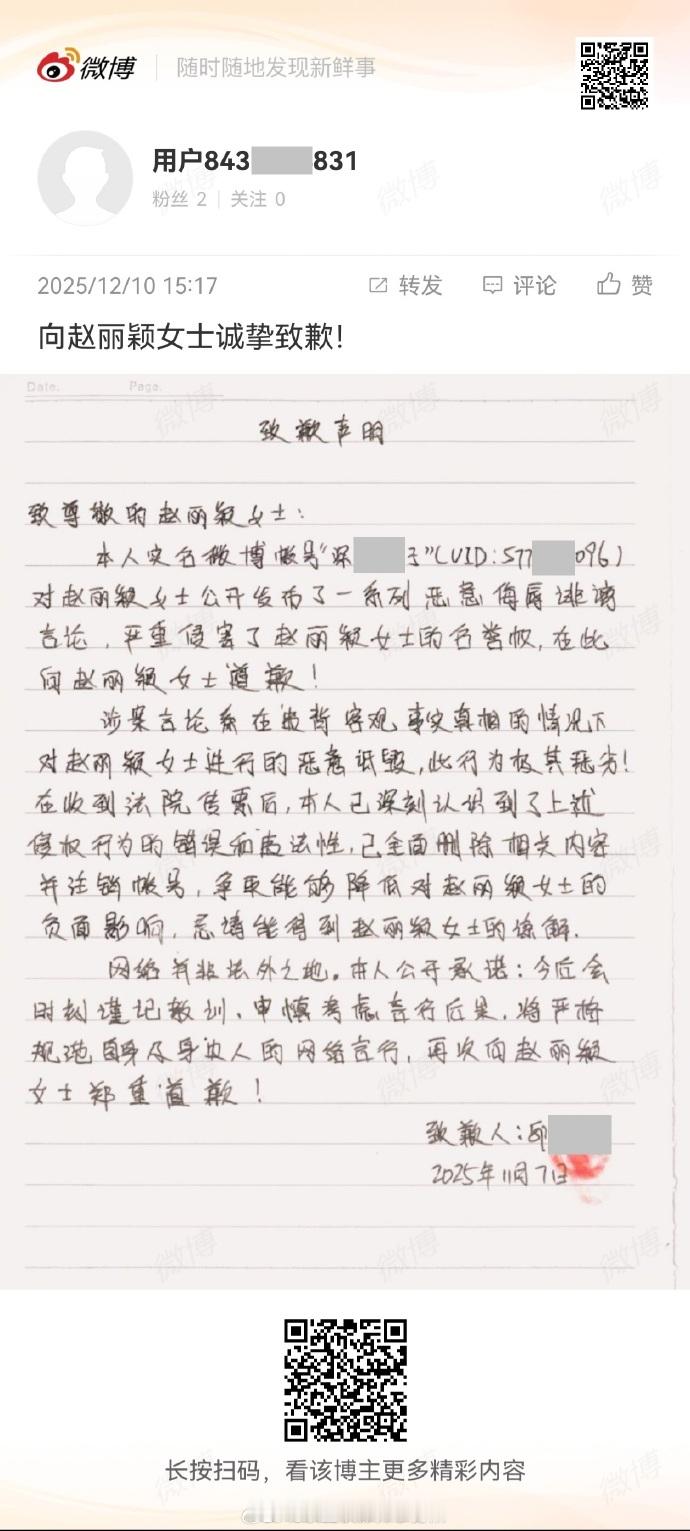 微博 随时随地发现新鲜事
用户843 831
粉丝 2 关注 0
2025/12/10 15:17 转发 评论 赞
向赵丽颖女士诚挚致歉！
Date. Page.
致歉声明
致尊敬的赵丽颖女士：
本人实名微博帐号“深 子”（UID:577 096）
对赵丽颖女士公开发布了一系列恶意侮辱诽谤
言论，严重侵害了赵丽颖女士的名誉权，在此
向赵丽颖女士道歉！
涉案言论系在 客观事实真相的情况下
对赵丽颖女士进行的恶意诋毁，此行为极其恶劣！
在收到法院传票后，本人已深刻认识到了上述
侵权行为的错误和违法性，已全面删除相关内容
并注销帐号，争取能够降低对赵丽颖女士的
负面影响，恳请能得到赵丽颖女士的谅解.
网络并非法外之地。本人公开承诺：今后会
时刻谨记教训，审慎考虑言行后果，将严格
规范自身及身边人的网络言行，再次向赵丽颖
女士郑重道歉！
致歉人：邱
2025年11月7日
长按扫码，看该博主更多精彩内容
微博